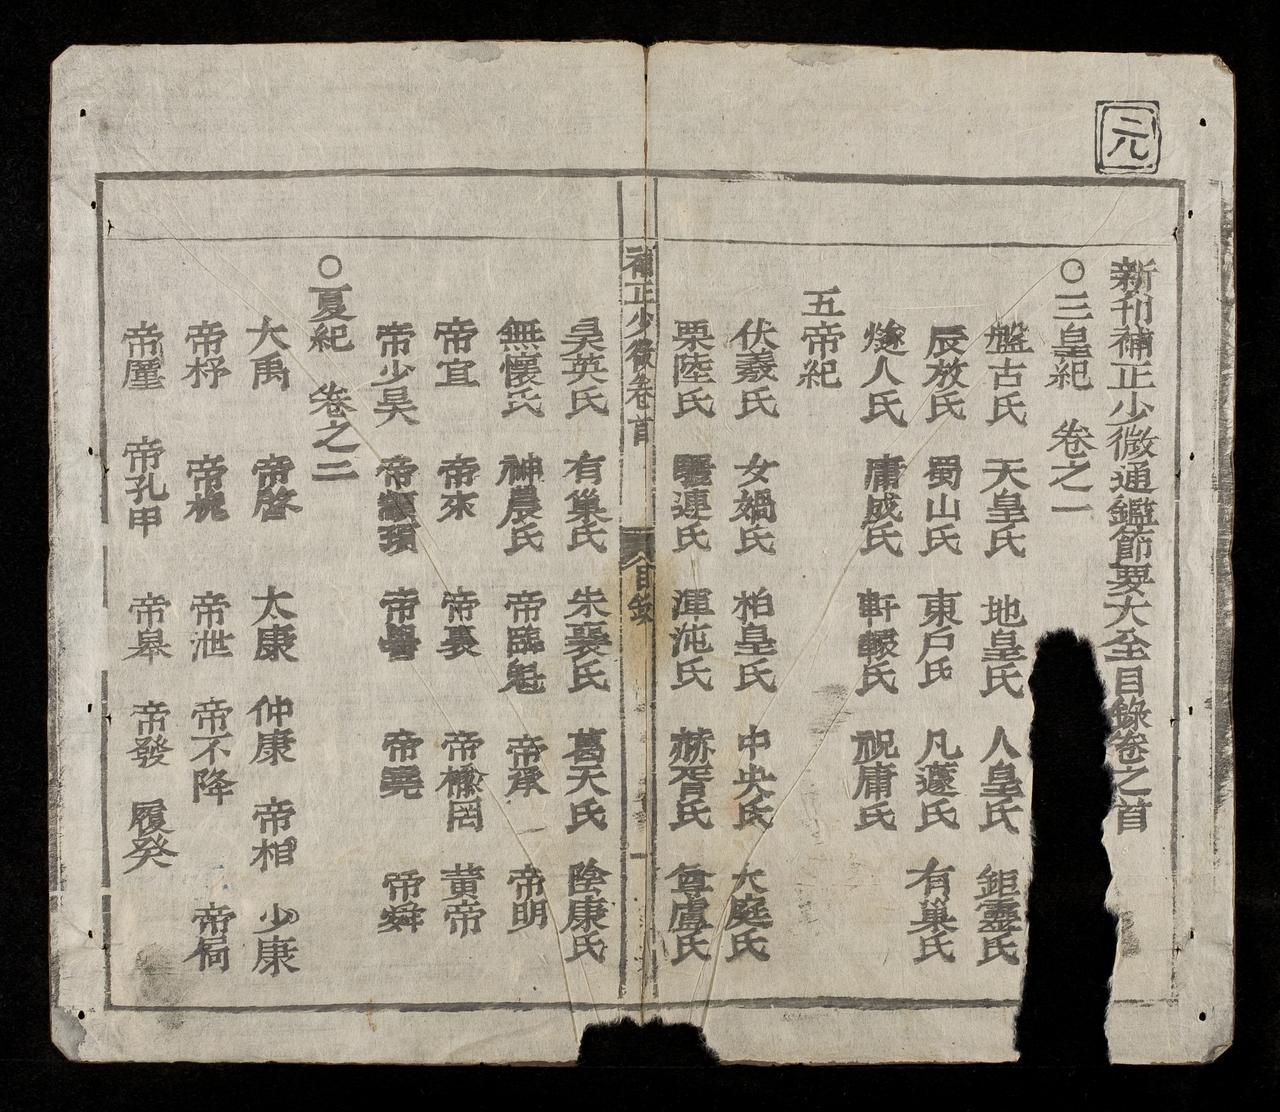 元
新刊補正少微通鑑節要大全目錄卷之首
○三皇紀 卷之一
盤古氏 天皇氏 地皇氏 人皇氏 鉅靈氏
辰放氏 蜀山氏 東戶氏 凡蘧氏 有巢氏
燧人氏 庸成氏 軒轅氏 祝庸氏
五帝紀
伏羲氏 女媧氏 柏皇氏 中央氏 大庭氏
栗陸氏 驪連氏 渾沌氏 赫胥氏 尊盧氏
補正少微卷首 目錄 一
昊英氏 有巢氏 朱襄氏 葛天氏 陰康氏
無懷氏 神農氏 帝臨魁 帝承 帝明
帝宜 帝來 帝裏 帝楡罔 黃帝
帝少昊 帝顓頊 帝嚳 帝堯 帝舜
○夏紀 卷之二
大禹 帝啓 太康 仲康 帝相 少康
帝杼 帝槐 帝泄 帝不降 帝扃
帝廑 帝孔甲 帝皋 帝發 履癸